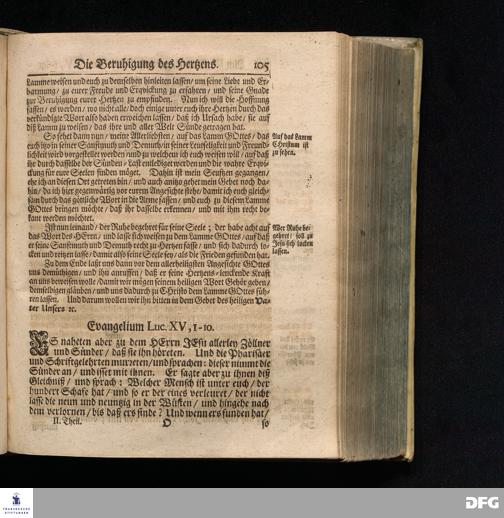 Die Beruhigung des Hertzens. 105
Lamme weisen und euch zu demselben hinleiten lassen/ um seine Liebe und Er-
barmung/ zu eurer Freude und Erquickung zu erfahren/ und seine Gnade
zur Beruhigung eurer Hertzen zu empfinden. Nun ich will die Hoffnung
fassen/ es werden/ wo nicht alle/ doch einige unter euch ihre Hertzen durch das
verkündigte Wort also haben erweichen lassen/ daß ich Ursach habe/ sie auf
diß Lamm zu weisen/ das ihre und aller Welt Sünde getragen hat.
So sehet dann nun/ meine Allerliebsten/ auf das Lamm GOttes/ das
euch itzo in seiner Sanftmuth und Demuth/ in seiner Leutseligkeit und Freund-
lichkeit wird vorgestellet werden/ und zu welchem ich euch weisen will/ auf daß
ihr durch dasselbe der Sünden-Last entlediget werden und die wahre Erqvi-
ckung für eure Seelen finden möget. Dahin ist mein Seufzen gegangen/
ehe ich an diesen Ort getreten bin/ und auch anitzo gehet mein Gebet noch da-
hin/ da ich hier gegenwärtig vor eurem Angesichte stehe/ damit ich euch gleich-
sam durch das göttliche Wort in die Arme fassen/ und euch zu diesem Lamme
GOttes bringen möchte/ daß ihr dasselbe erkennen/ und mit ihm recht be-
kant werden möchtet.
Auf das Lamm
Christum ist
zu sehen.
Ist nun iemand/ der Ruhe begehret für seine Seele; der habe acht auf
das Wort des HErrn/ und lasse sich weisen zum Lamme GOttes/ auf daß
er seine Sanftmuth und Demuth recht zu Hertzen fasse/ und sich dadurch lo-
cken und reitzen lasse/ damit also seine Seele sey/ als die Frieden gefunden hat.
Wer Ruhe be-
gehret/ soll zu
JEsu sich locken
lassen.
Zu dem Ende last uns dann vor dem allerheiligsten Angesichte GOttes
uns demüthigen/ und ihn anruffen/ daß er seine Hertzens-lenckende Kraft
an uns beweisen wolle/ damit wir mögen seinem heiligen Wort Gehör geben/
demselbigen gläuben/ und uns dadurch zu Christo dem Lamme GOttes füh-
ren lassen. Und darum wollen wir ihn bitten in dem Gebet des heiligen Va-
ter Unsers ꝛc.
Evangelium Luc. XV, 1-10.
ES naheten aber zu dem HErrn JEsu allerley Zöllner
und Sünder/ daß sie ihn höreten. Und die Pharisäer
und Schriftgelehrten murreten/ und sprachen: dieser nimmt die
Sünder an/ und isset mit ihnen. Er sagte aber zu ihnen diß
Gleichniß/ und sprach: Welcher Mensch ist unter euch/ der
hundert Schafe hat/ und so er der eines verleuret/ der nicht
lasse die neun und neuntzig in der Wüsten/ und hingehe nach
dem verlornen/ biß daß ers finde? Und wenn ers funden hat/
II. Theil. O so
FRANCKESCHE
STIFTUNGEN
DFG